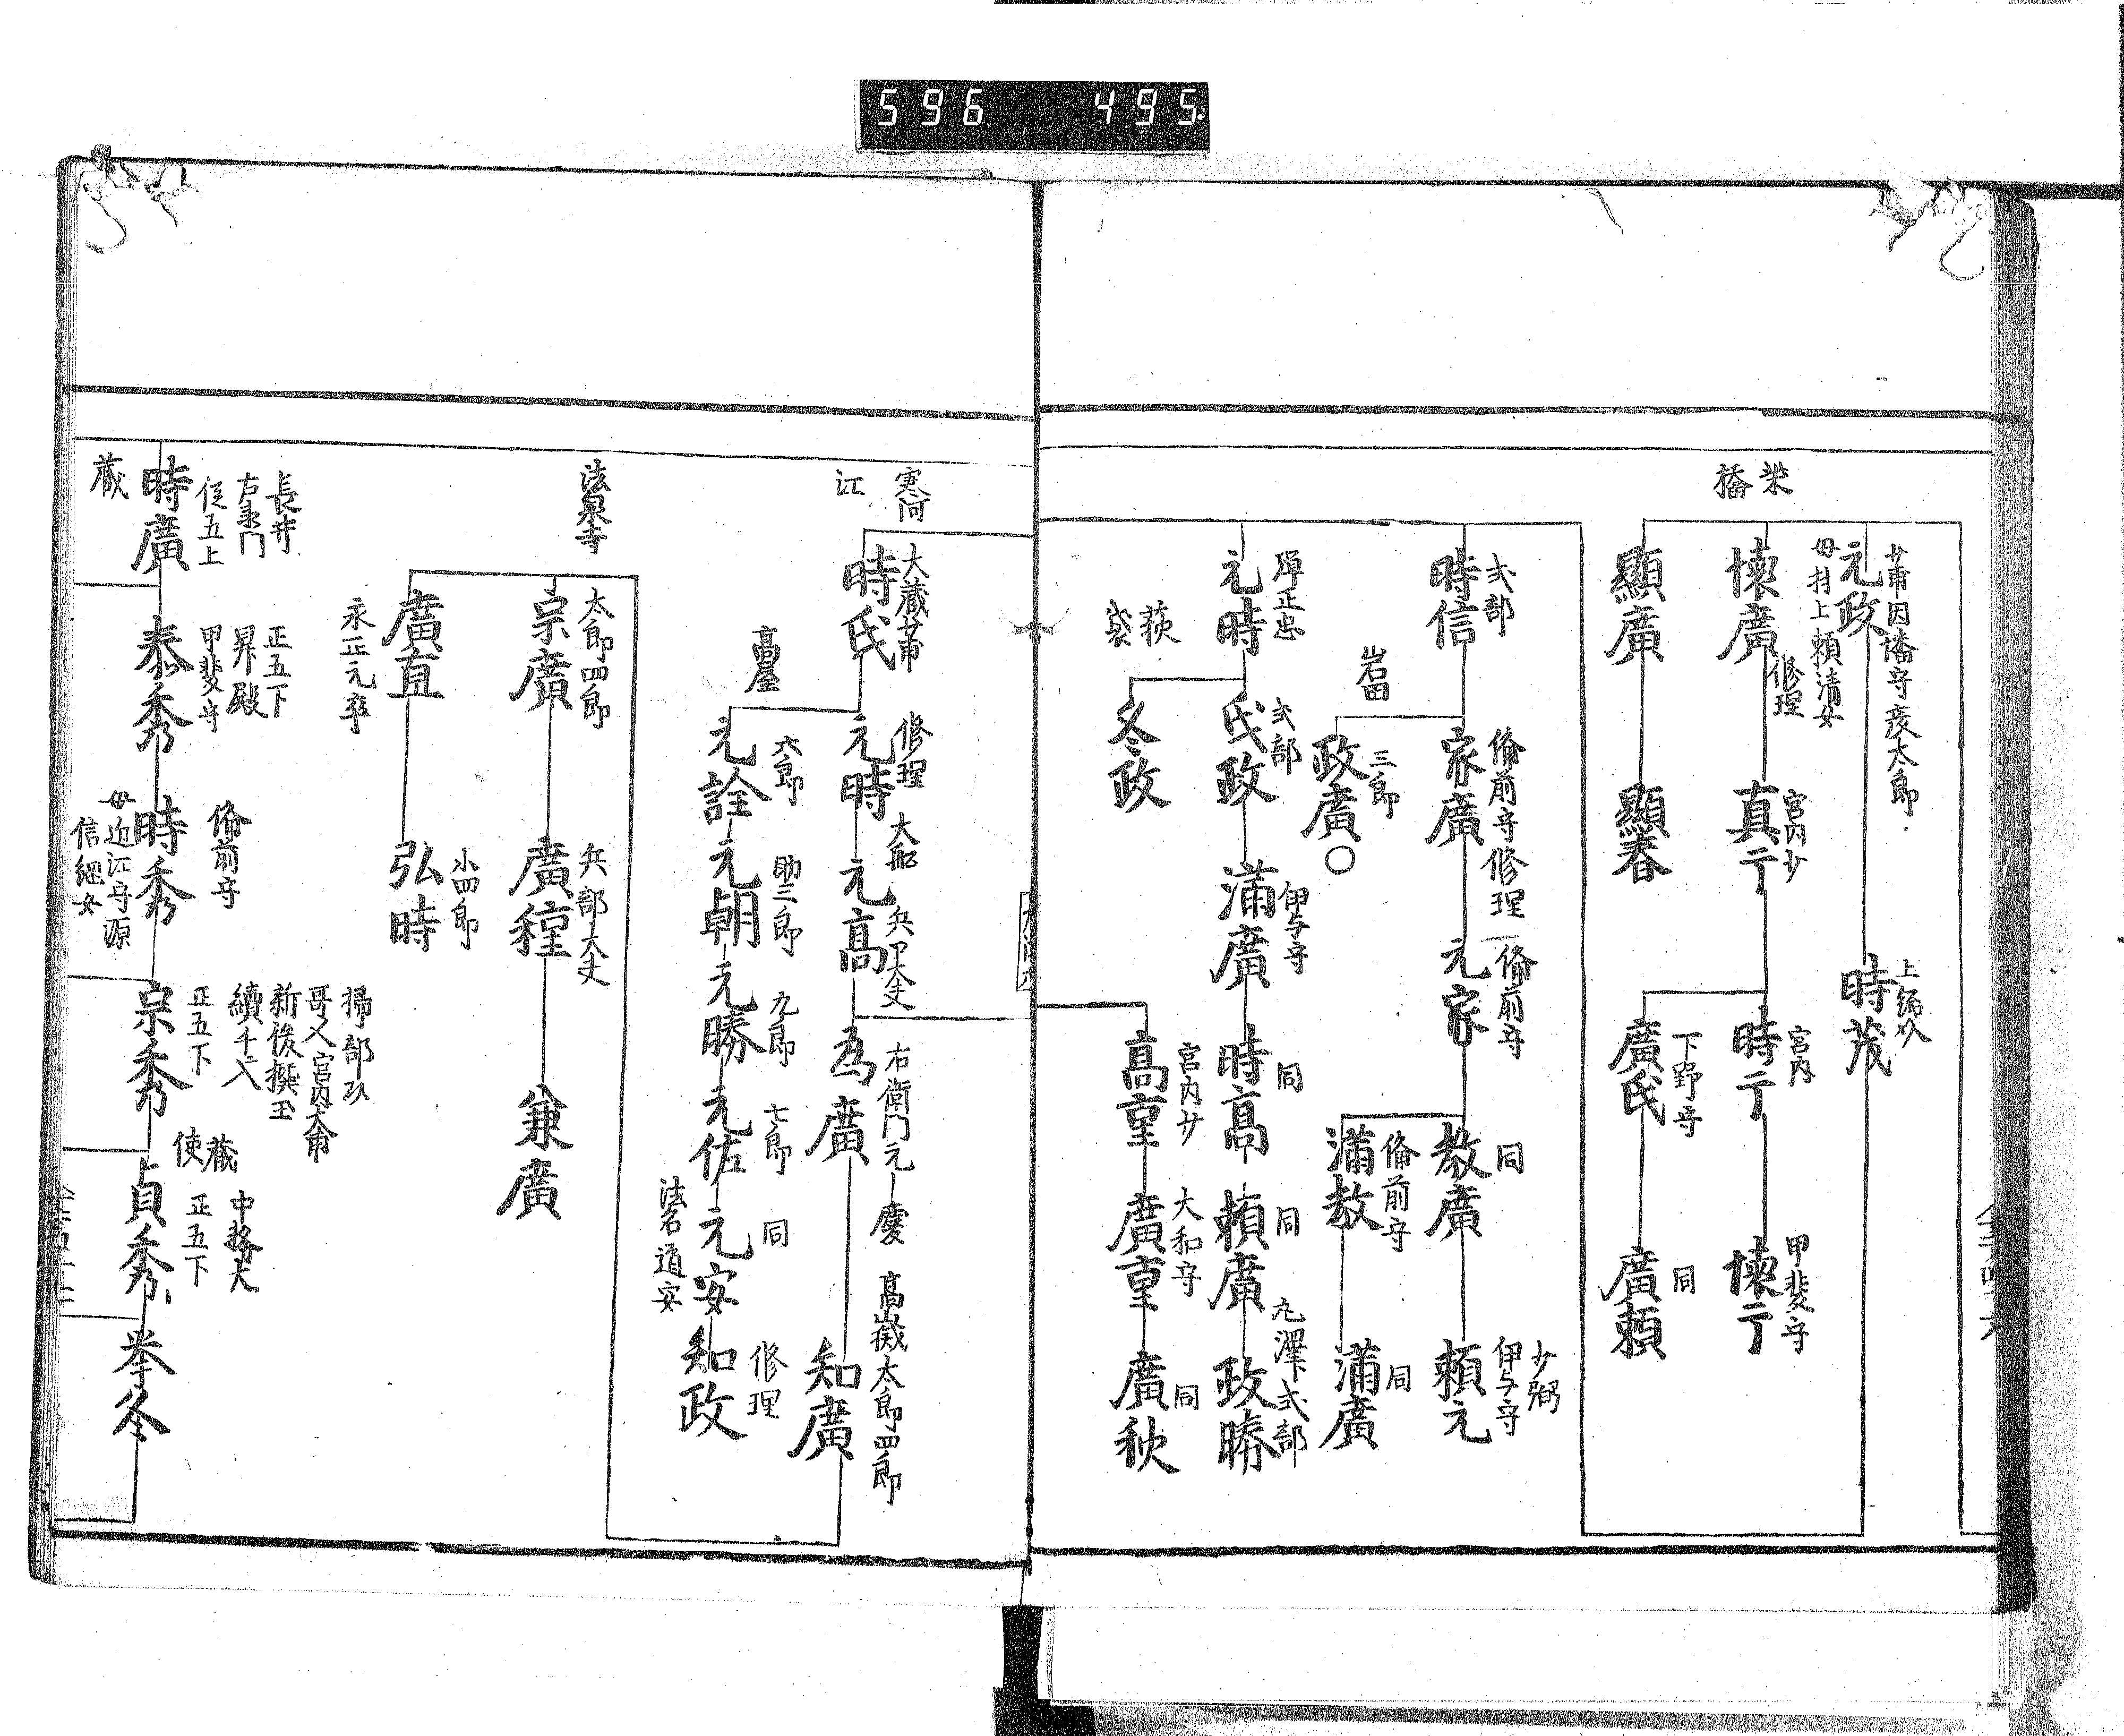 596 495
少甫因幡守彦太郎
元政
母村上頼清女
上総介
時茂
梁
橋
懐廣
修理
宮内少
真廣
宮内
時廣
甲斐守
懐廣
顯廣
顯春
下野守
廣氏
同
廣頼
式部
時信
備前守修理
家廣
備前守
元家
同
教廣
少弼
伊与守
頼元
岩田
三郎
政廣○
備前守
満教
同
満廣
弾正忠
元時
式部
氏政
伊与守
満廣
同
時高
同
頼廣
丸澤下式部
政勝
荻
袋
冬政
宮内少
高重
大和守
廣重
同
廣秋
寒河
江
大蔵少甫
時氏
修理
元時
大郎
元高
兵部大夫
為廣
右衛門元慶
高擬太郎四郎
知廣
高屋
六郎
元詮
助三郎
元朝
九郎
元勝
七郎
元佐
同
元安
法名道安
修理
知政
法泉寺
太郎四郎
宗廣
兵部大夫
廣種
兼廣
廣直
永正元卒
小四郎
弘時
長井
右衛門
従五上
時廣
蔵
正五下
昇殿
甲斐守
泰秀
備前守
時秀
母近江守源
信綱女
掃部頭
哥人宮内大甫
新後撰玉
續千入
正五下
宗秀
蔵
使
中務大
正五下
貞秀
挙冬